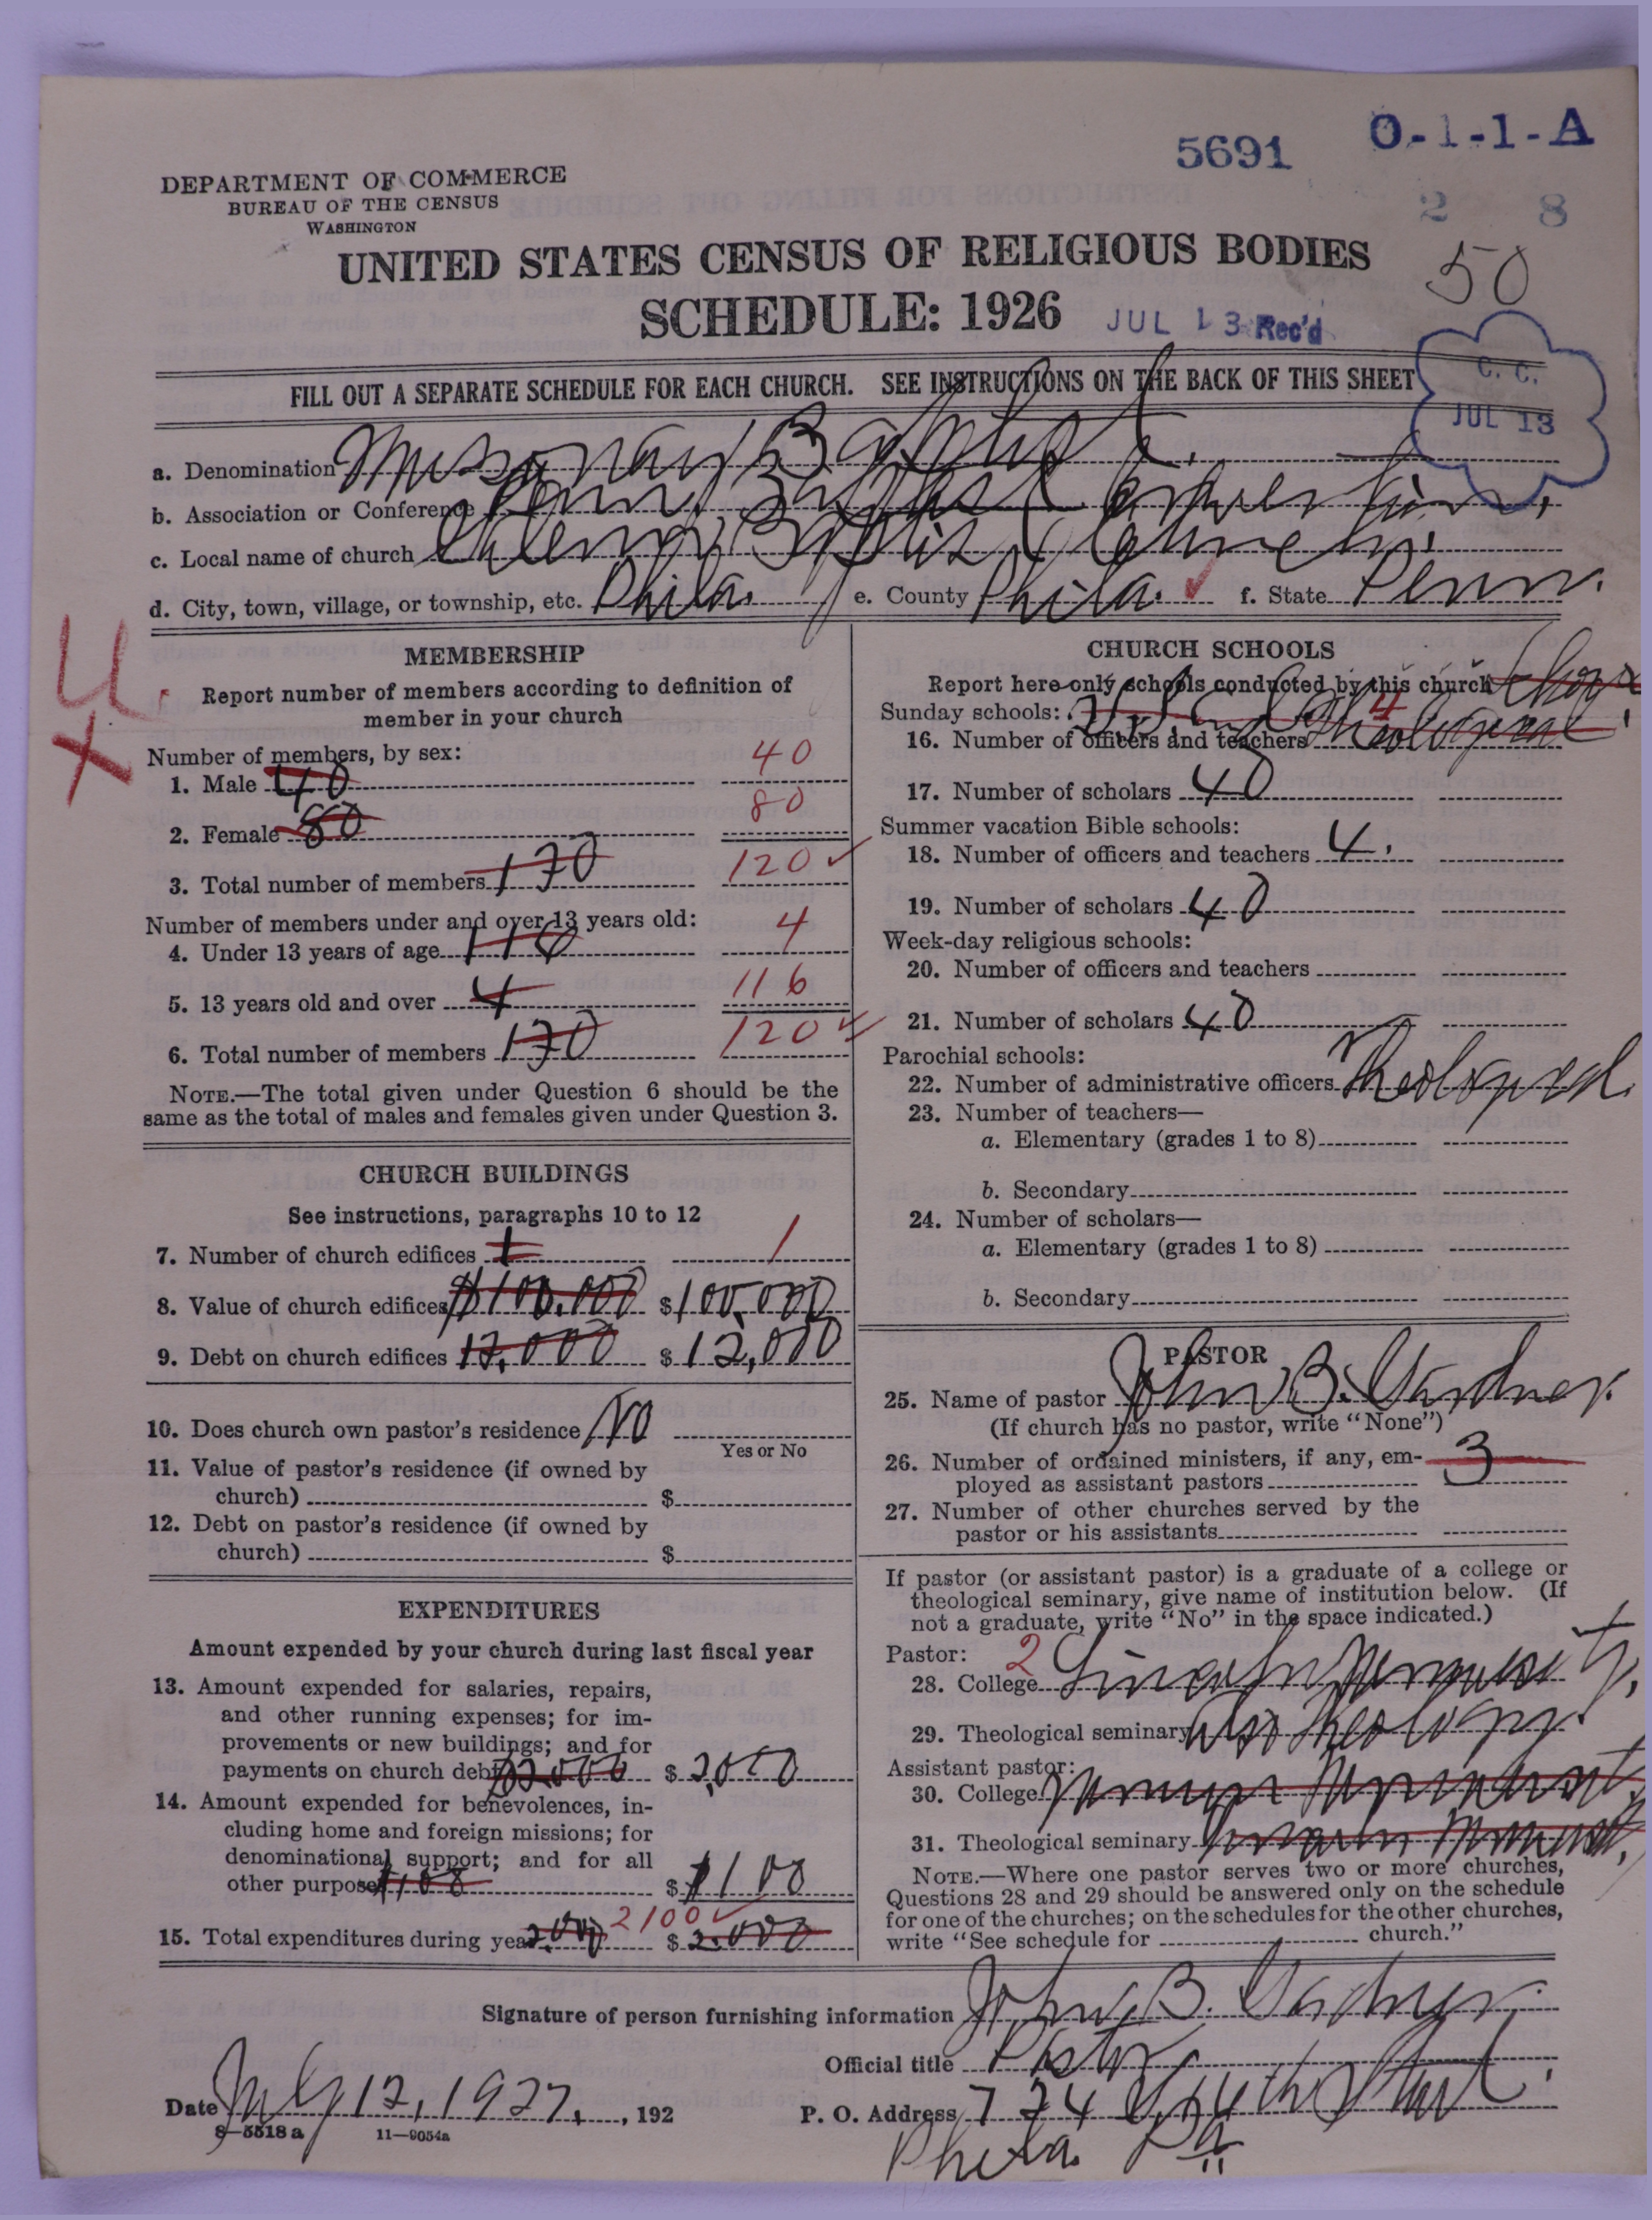 5691 O-1-1-A
DEPARTMENT OF COMMERCE
BUREAU OF THE CENSUS
WASHINGTON
2 8
UNITED STATES CENSUS OF RELIGIOUS BODIES
50
SCHEDULE: 1926 JUL 13 Rec'd
FILL OUT A SEPARATE SCHEDULE FOR EACH CHURCH. SEE INSTRUCTIONS ON THE BACK OF THIS SHEET
C. C.
JUL 13
a. Denomination Missionary Baptist.
b. Association or Conference Penn. Baptist Convention.
c. Local name of church Baptist Church.
d. City, town, village, or township, etc. Phila. e. County Phila. ✓ f. State Penn.
MEMBERSHIP
Report number of members according to definition of
member in your church
Number of members, by sex:
1. Male 40 40
2. Female 80 80
3. Total number of members 120 120 ✓
Number of members under and over 13 years old:
4. Under 13 years of age 116 4
5. 13 years old and over 4 116
6. Total number of members 120 120 ✓
NOTE.—The total given under Question 6 should be the
same as the total of males and females given under Question 3.
CHURCH BUILDINGS
See instructions, paragraphs 10 to 12
7. Number of church edifices 1 1
8. Value of church edifices $100,000 $100,000
9. Debt on church edifices 12,000 $12,000
10. Does church own pastor's residence No
Yes or No
11. Value of pastor's residence (if owned by
church) $
12. Debt on pastor's residence (if owned by
church) $
EXPENDITURES
Amount expended by your church during last fiscal year
13. Amount expended for salaries, repairs,
and other running expenses; for im-
provements or new buildings; and for
payments on church debt $2,000 $2,000
14. Amount expended for benevolences, in-
cluding home and foreign missions; for
denominational support; and for all
other purposes $100 $100
15. Total expenditures during year 2,000 2100 ✓ $2,000
CHURCH SCHOOLS
Report here only schools conducted by this church
Sunday schools: 4
16. Number of officers and teachers Theological
17. Number of scholars 40
Summer vacation Bible schools:
18. Number of officers and teachers 4.
19. Number of scholars 40
Week-day religious schools:
20. Number of officers and teachers
21. Number of scholars 40
Parochial schools:
22. Number of administrative officers Theological
23. Number of teachers—
a. Elementary (grades 1 to 8)
b. Secondary
24. Number of scholars—
a. Elementary (grades 1 to 8)
b. Secondary
PASTOR
25. Name of pastor John B. Gardner.
(If church has no pastor, write "None")
26. Number of ordained ministers, if any, em- 3
ployed as assistant pastors
27. Number of other churches served by the
pastor or his assistants
If pastor (or assistant pastor) is a graduate of a college or
theological seminary, give name of institution below. (If
not a graduate, write "No" in the space indicated.)
Pastor: 2
28. College Lincoln University.
29. Theological seminary Also Theology.
Assistant pastor:
30. College
31. Theological seminary Lincoln University.
NOTE.—Where one pastor serves two or more churches,
Questions 28 and 29 should be answered only on the schedule
for one of the churches; on the schedules for the other churches,
write "See schedule for church."
Signature of person furnishing information John B. Gardner.
Official title Pastor
Date July 12, 1927, 192 P. O. Address 724 Street.
Phila. Pa
8-5518a 11—9054a